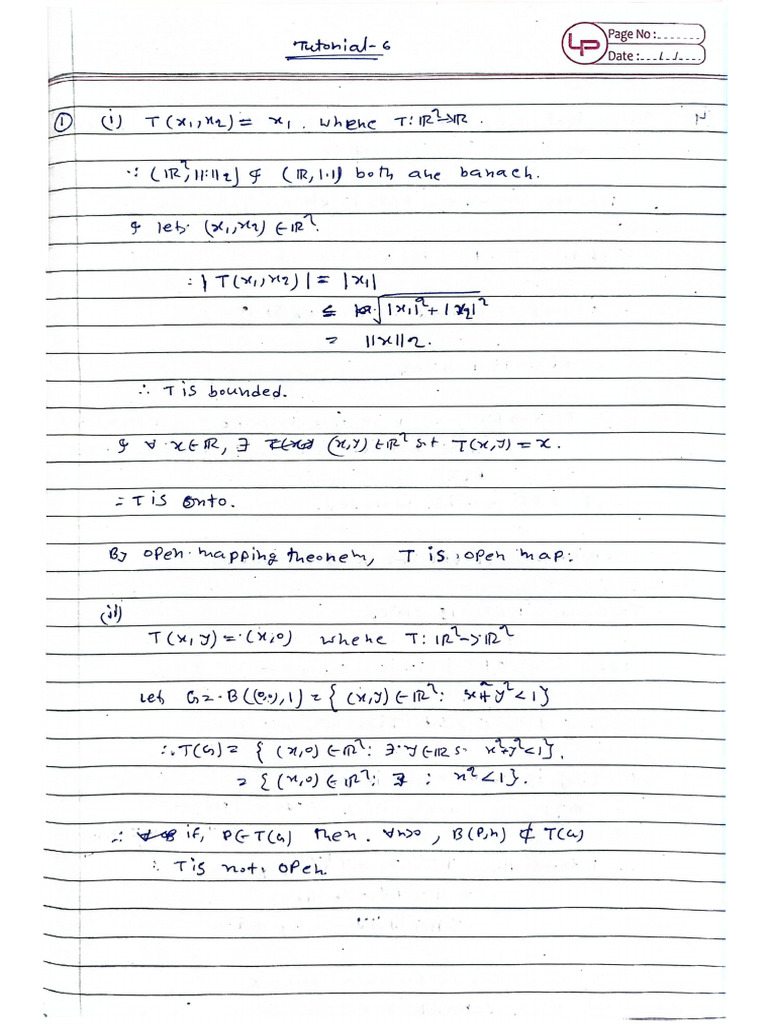 Tutorial-6
LP
Page No :.......
Date :...../...../.....
① (i) T(x₁,x₂) = x₁. where T: ℝ²→ℝ.
∵ (ℝ², ||·||₂) & (ℝ, |·|) both are banach.
& let (x₁,x₂) ∈ ℝ².
∴ |T(x₁,x₂)| = |x₁|
≤ √|x₁|² + |x₂|²
= ||x||₂.
∴ T is bounded.
& ∀ x∈ℝ, ∃ (x,y) ∈ ℝ² s.t. T(x,y) = x.
= T is onto.
By open mapping theorem, T is open map.
(ii)
T(x,y) = (x,0) where T: ℝ² → ℝ²
let G = B((0,0),1) = { (x,y) ∈ ℝ² : x²+y² < 1}
∴ T(G) = { (x,0) ∈ ℝ² : ∃ y∈ℝ s. x²+y²<1}.
= {(x,0) ∈ ℝ² : ∃ : x²<1}.
∴ if, P∈T(G) then. ∀r>0, B(P,r) ⊄ T(G)
∴ T is not open.